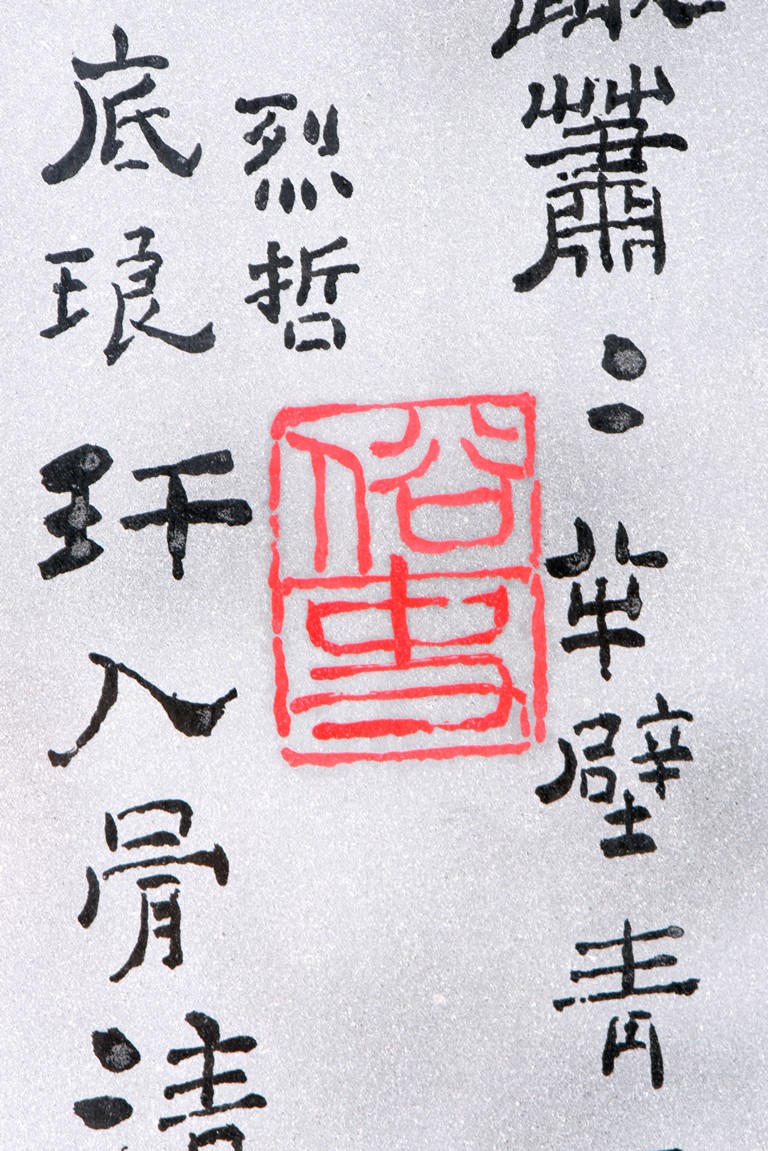 蕭〻半壁青
烈哲
俗
底琅玕入骨清